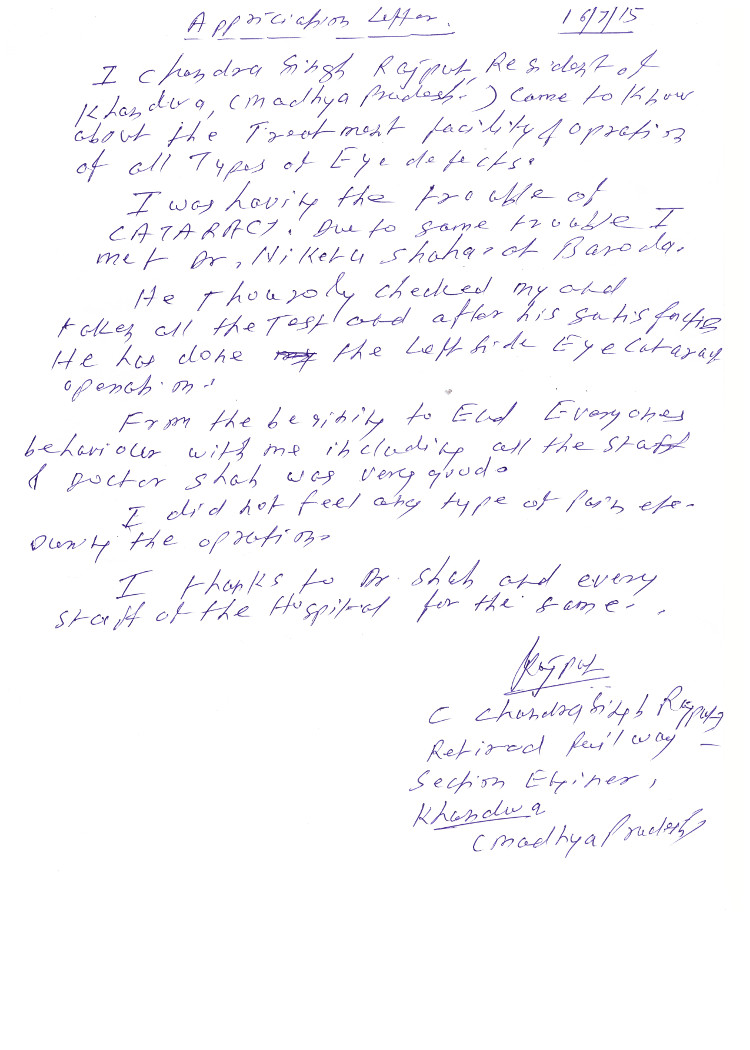 Appriciation Letter. 16/7/15
I Chandra Singh Rajput, Resident of
Khandwa, (Madhya Pradesh.) Came to Know
about the Treatment facility & opration
of all Types of Eye defects.
I was having the trouble of
CATARACT. Due to same trouble I
met Dr. Niketu Shah of Baroda.
He thouroly checked my and
taken all the Test and after his satisfaction
He has done the Left side Eye Cataract
operation.
From the begining to End Everyones
behaviour with me including all the staff
& Doctor Shah was very good.
I did not feel any type of Pain etc.
During the opration.
I thanks to Dr. Shah and every
staff of the Hospital for the same.
Rajput
( Chandra Singh Rajput)
Retired Railway
Section Enginer,
Khandwa
(Madhya Pradesh)